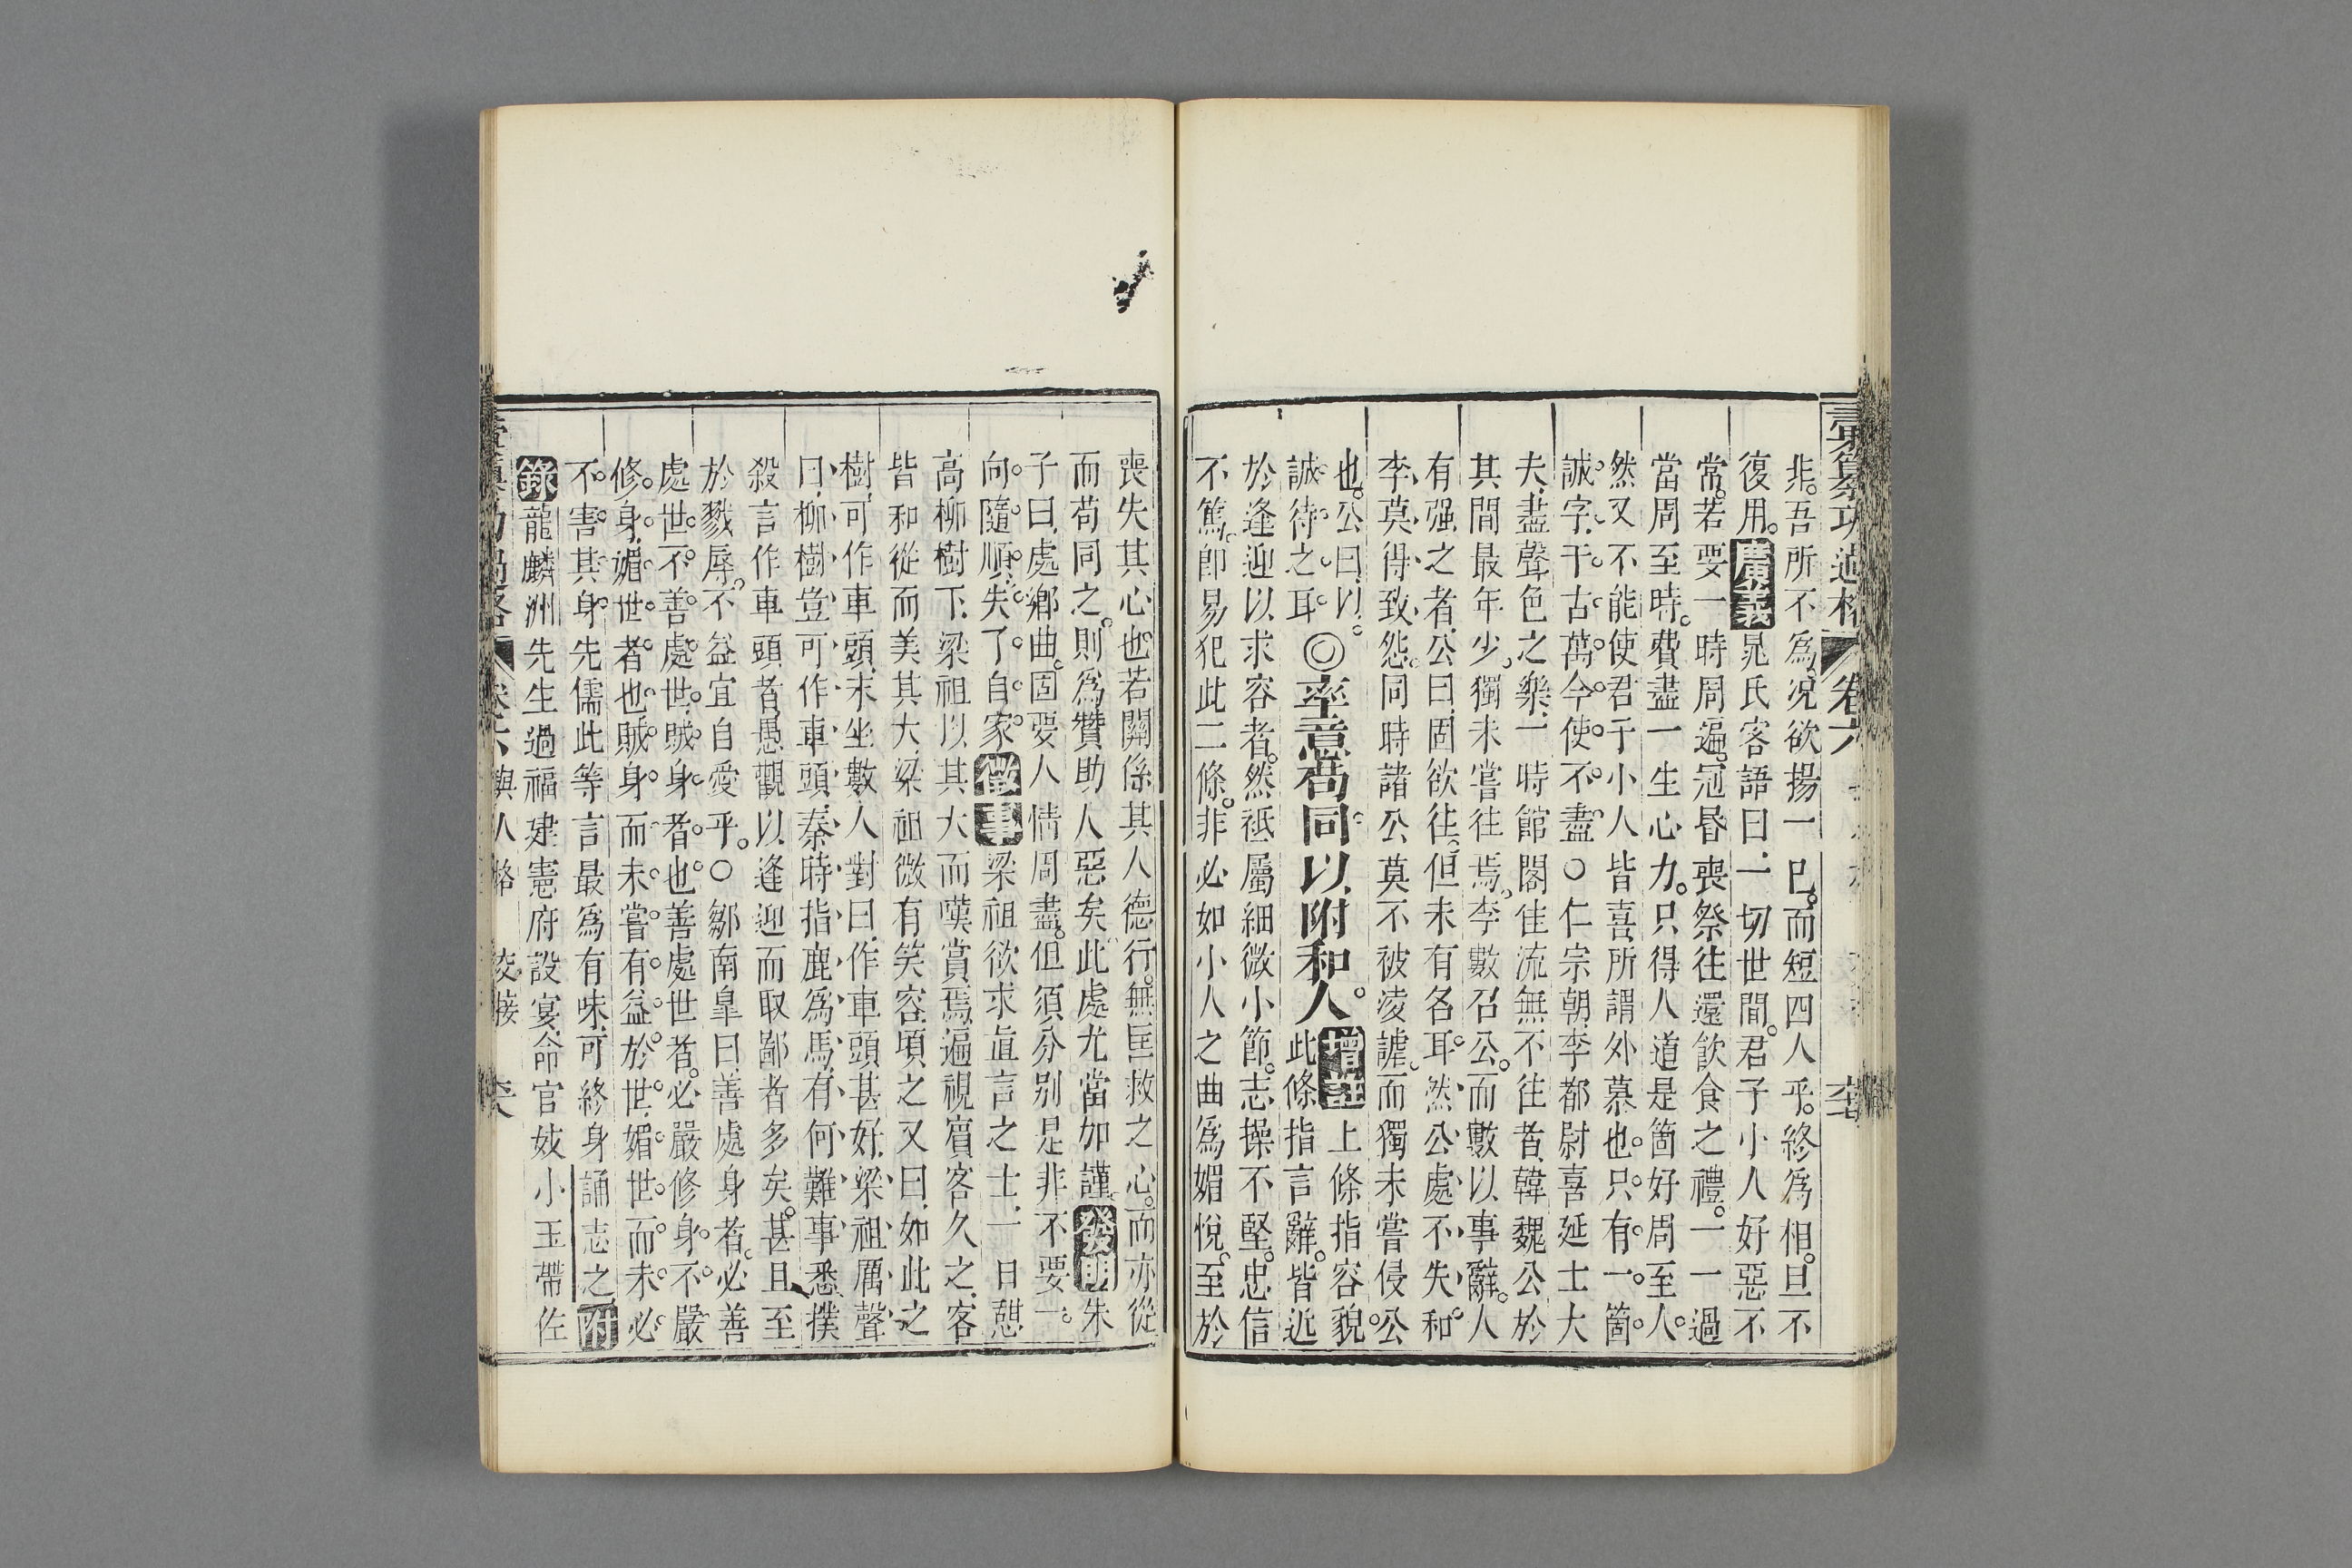 彙纂功過格 卷六
非。吾所不爲、况欲揚一巳。而短四人乎。終爲相。旦不
復用。廣義晁氏客語曰、一切世間。君子小人好惡不
常。若要一時周遍。冠昏喪祭往還飲食之禮。一一過
當周至時。費盡一生心力。只得人道是箇好周至人。
然又不能使君于小人皆喜、所謂外慕也。只有一箇
誠字、于古萬今使不盡○仁宗朝、李都尉喜延士大
夫、盡聲色之樂、一時館閣佳流無不往者、韓魏公於
其間最年少、獨未嘗往焉。李數召公。而數以事辭。人
有强之者、公曰、固欲往。但未有名耳。然公處不失和
李、莫得致怨。同時諸公莫不被凌謔。而獨未嘗侵公
也。公曰、以
誠待之耳◎率意苟同以附和人。增註上條指容貌。
此條指言辭。皆近
於逢迎以求容者。然祗屬細微小節。志操不堅。忠信
不篤。卽易犯此二條。非必如小人之曲爲媚悅。至於
喪失其心也。若關係其人德行。無匡救之心。而亦從
而苟同之。則爲贊助人惡矣、此處尤當加謹。發明朱
子曰、處鄉曲。固要人情周盡。但須分别是非、不要一
向隨順、失了自家。徵事梁祖欲求直言之士、一日憇
高柳樹下、梁祖以其大而嘆賞焉、遍視賓客久之、客
皆和從而美其大、梁祖微有笑容、頃之又曰、如此之
樹、可作車頭、末坐數人對曰、作車頭甚好、梁祖厲聲
曰、柳樹豈可作車頭、秦時指鹿爲馬、有何難事、悉撲
殺言作車頭者、愚觀以逢迎而取鄙者多矣。甚且至
於戮辱。不益宜自愛乎。○鄒南皐曰、善處身者。必善
處世。不善處世。賊身者也。善處世者。必嚴修身。不嚴
修身。媚世者也。賊身而未嘗有益於世、媚世而未必
不害其身、先儒此等言最爲有味、可終身誦志之、附
錄龍麟洲先生過福建憲府設宴、命官妓小玉帶佐
卷六 與人格 交接 六八